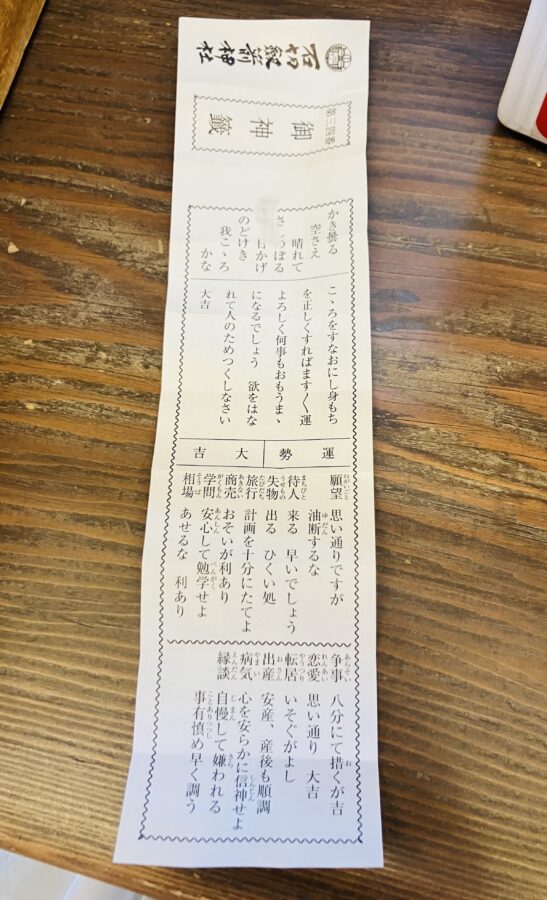 石切劔箭神社
第三四番
御神籤
かき曇る
空さえ
晴れて
さしのぼる
日かげ
のどけき
我こゝろ
かな
こゝろをすなおにし身もち
を正しくすればます〱運
よろしく何事もおもうまゝ
になるでしょう 欲をはな
れて人のためつくしなさい
大吉
運勢
大吉
願望 思い通りですが
油断するな
待人 来る 早いでしょう
失物 出る ひくい処
旅行 計画を十分にたてよ
商売 おそいが利あり
学問 安心して勉学せよ
相場 あせるな 利あり
争事 八分にて措くが吉
恋愛 思い通り 大吉
転居 いそぐがよし
出産 安産、産後も順調
病気 心を安らかに信神せよ
縁談 自慢して嫌われる
事有慎め早く調う